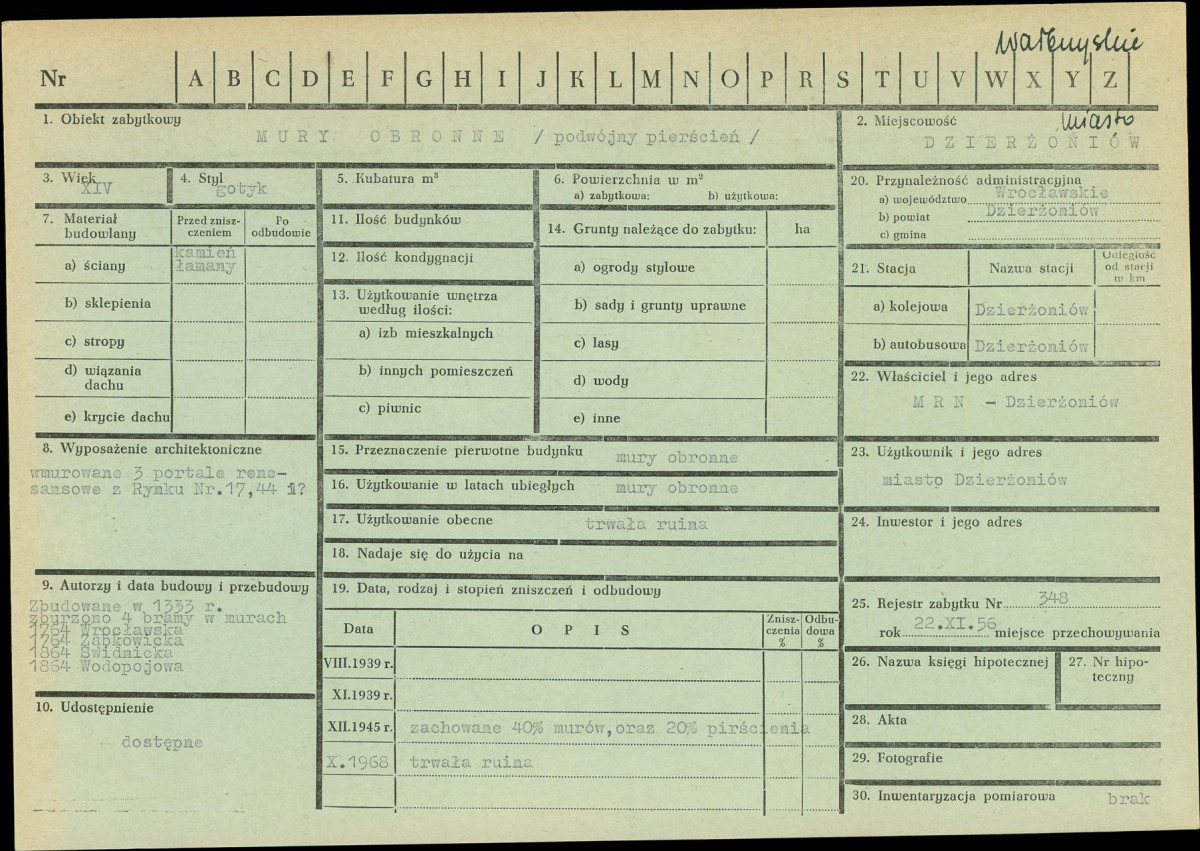 wałbrzyskie
Nr A B C D E F G H I J K L M N O P R S T U V W X Y Z
1. Obiekt zabytkowy
MURY OBRONNE / podwójny pierścień /
2. Miejscowość
miasto
DZIERŻONIÓW
3. Wiek
XIV
4. Styl
gotyk
5. Kubatura m³
6. Powierzchnia w m²
a) zabytkowa: b) użytkowa:
20. Przynależność administracyjna
a) województwo Wrocławskie
b) powiat Dzierżoniów
c) gmina
7. Materiał budowlany
Przed znisz-
czeniem
Po
odbudowie
a) ściany
kamień
łamany
b) sklepienia
c) stropy
d) wiązania
dachu
e) krycie dachu
11. Ilość budynków
12. Ilość kondygnacji
13. Użytkowanie wnętrza
według ilości:
a) izb mieszkalnych
b) innych pomieszczeń
c) piwnic
14. Grunty należące do zabytku: ha
a) ogrody stylowe
b) sady i grunty uprawne
c) lasy
d) wody
e) inne
21. Stacja
Nazwa stacji
Odległość
od stacji
w km
a) kolejowa Dzierżoniów
b) autobusowa Dzierżoniów
22. Właściciel i jego adres
MRN - Dzierżoniów
8. Wyposażenie architektoniczne
wmurowane 3 portale rene-
sansowe z Rynku Nr.17,44 i?
15. Przeznaczenie pierwotne budynku mury obronne
16. Użytkowanie w latach ubiegłych mury obronne
17. Użytkowanie obecne trwała ruina
18. Nadaje się do użycia na
23. Użytkownik i jego adres
miasto Dzierżoniów
24. Inwestor i jego adres
9. Autorzy i data budowy i przebudowy
Zbudowane w 1333 r.
zburzono 4 bramy w murach
1764 Wrocławska
1764 Ząbkowicka
1864 Świdnicka
1864 Wodopojowa
10. Udostępnienie
dostępne
19. Data, rodzaj i stopień zniszczeń i odbudowy
Data
OPIS
Znisz-
czenia
%
Odbu-
dowa
%
VIII.1939 r.
XI.1939 r.
XII.1945 r. zachowane 40% murów, oraz 20% pirścienia
X.1968 trwała ruina
25. Rejestr zabytku Nr 348
rok 22.XI.56 miejsce przechowywania
26. Nazwa księgi hipotecznej
27. Nr hipo-
teczny
28. Akta
29. Fotografie
30. Inwentaryzacja pomiarowa brak